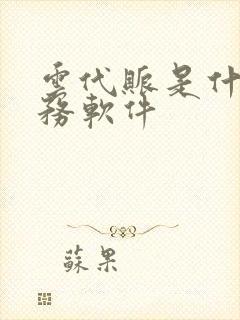 雲代賬是什
務軟件
蘇果